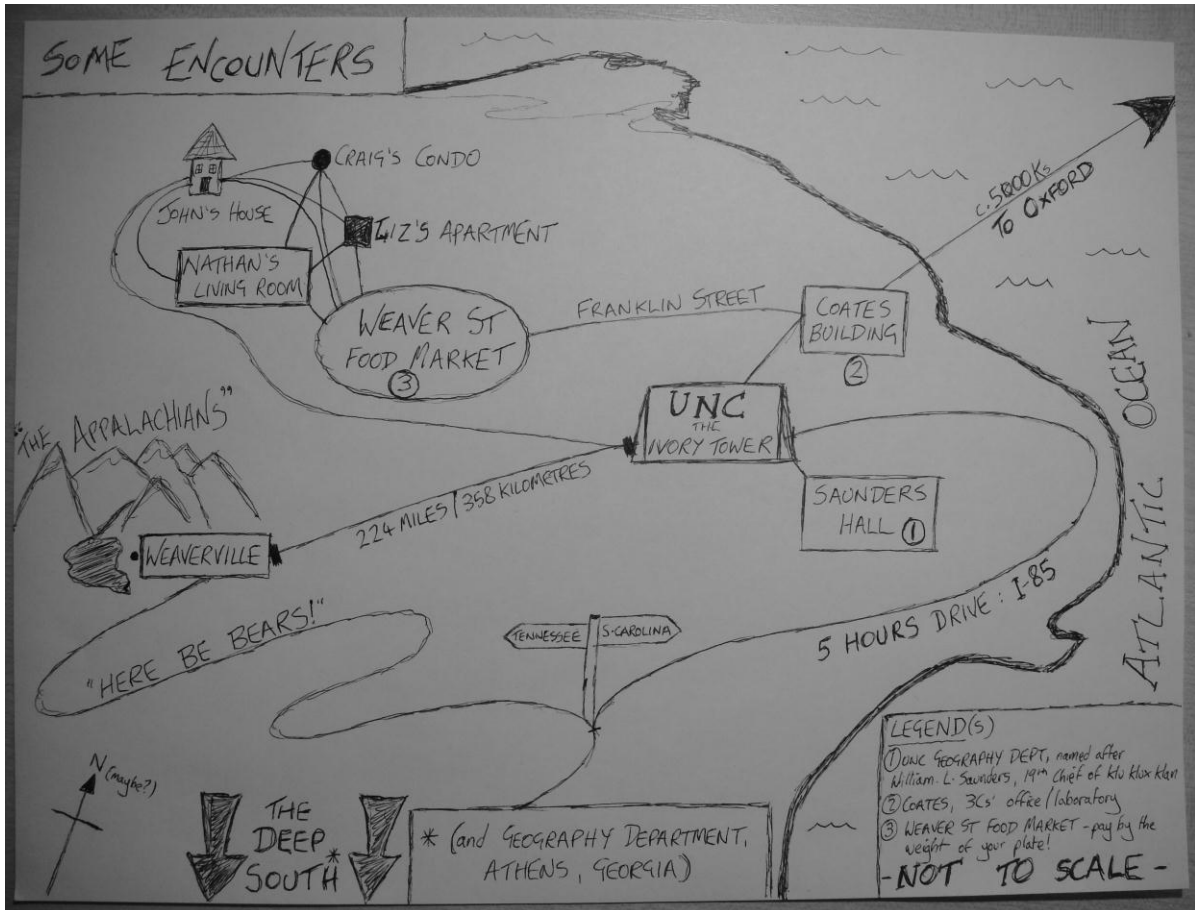 SOME ENCOUNTERS
CRAIG'S CONDO
JOHN'S HOUSE
LIZ'S APARTMENT
NATHAN'S
LIVING ROOM
WEAVER ST
FOOD MARKET
③
FRANKLIN STREET
COATES
BUILDING
②
c.5000Ks
TO OXFORD
ATLANTIC OCEAN
UNC
THE
IVORY TOWER
SAUNDERS
HALL ①
"THE APPALACHIANS"
WEAVERVILLE
224 MILES/358 KILOMETRES
"HERE BE BEARS!"
TENNESSEE
S-CAROLINA
5 HOURS DRIVE: I-85
N (maybe?)
THE
DEEP
SOUTH*
* (and GEOGRAPHY DEPARTMENT,
ATHENS, GEORGIA)
LEGEND(S)
① UNC GEOGRAPHY DEPT, named after
William. L. Saunders, 19th Chief of klu klux klan
② COATES, 3Cs' office/laboratory
③ WEAVER ST FOOD MARKET - pay by the
weight of your plate!
- NOT TO SCALE -